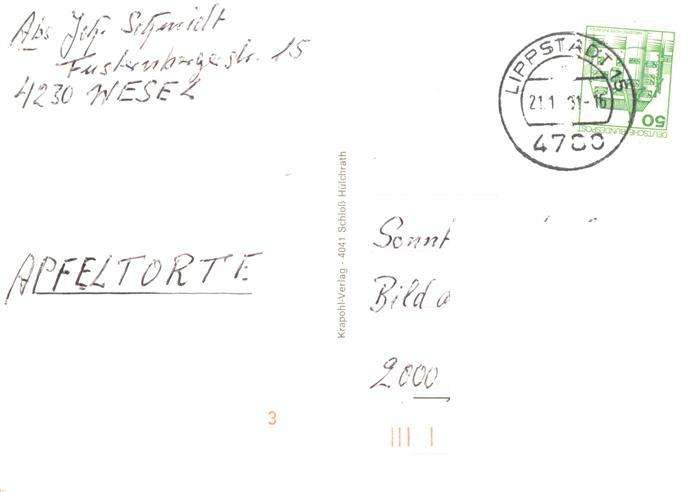 Abs Joh. Schmidt
Fusternbergerstr. 15
4230 WESEL
APFELTORTE
Krapohl-Verlag - 4041 Schloß Hülchrath
3
LIPPSTADT 15
21.1 81-16
4780
50
DEUTSCHE BUNDESPOST
Sonnt
Bild a
2000